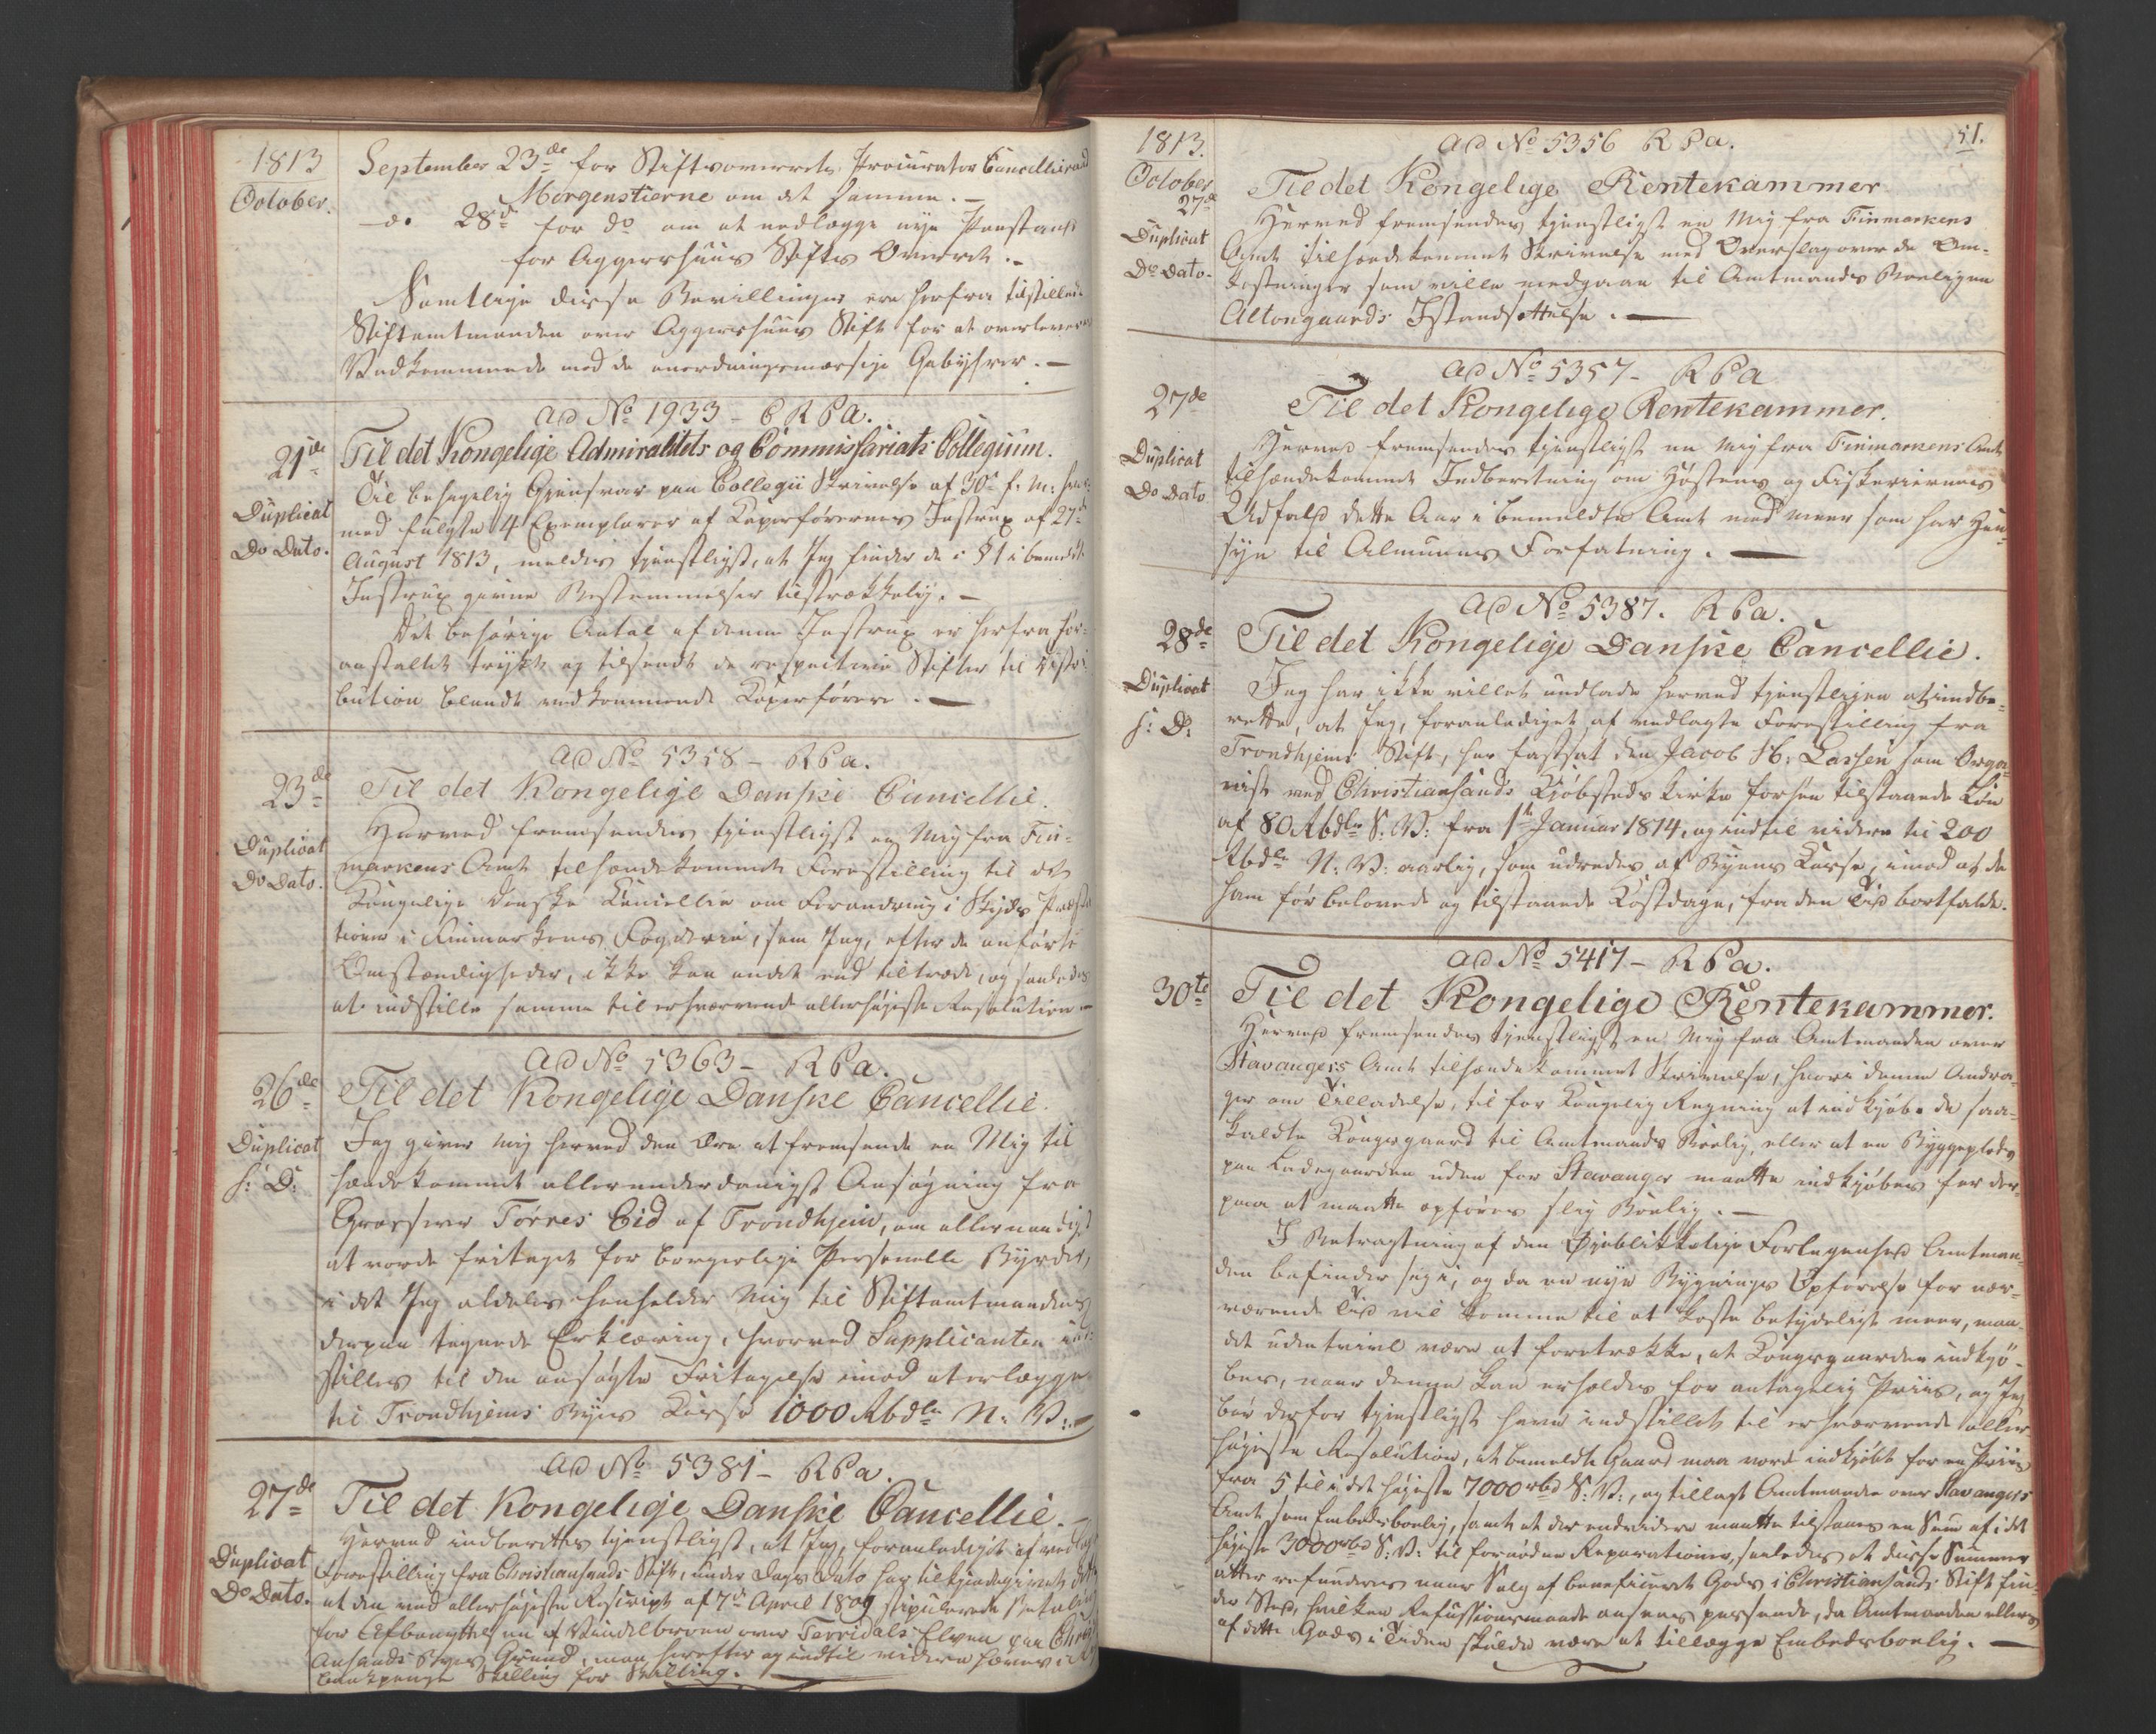 1813
October.
September 23de for Stiftsoverrets Procurator Cancellieraad
Morgenstierne om det samme. –
– d. 28de for do om at nedlægge nye Paastand
for Aggershuus Stifts Overret. –
Samtlige disse Bevillinger ere herfra tilstillede
Stiftamtmanden over Aggershuus Stift for at overleveres
Vedkommende mod de anordningsmæssige Gebyhrer. –
ad No 1933 – C R C a.
21de
Duplicat
Do Dato.
Til det Kongelige Admiralitets og Commissariats Collegium.
Til behagelig Gjensvar paa Collegii Skrivelse af 30te f. M:
med fulgte 4 Exemplarer af Kaperførernes Instrux af 27de
August 1813, meldes tjenstligst, at Jeg finder de i § 1 i bemeldte
Instrux givne Bestemmelser tilstrækkelig. –
Det behørige Antal af denne Instrux er herfra for-
anstaltet trykt og tilsendt de respective Stifter til Distri-
bution blandt vedkommende Kaperførere. –
ad No 5358 – R C a.
23de
Duplicat
Do Dato.
Til det Kongelige Danske Cancellie.
Herved fremsendes tjenstligst en Mig fra Fin-
markens Amt tilhændekommet Forestilling til det
Kongelige Danske Cancellie om Forandring i Skyds Præsta-
tionen i Finmarkens Fogderie, som Jeg, efter de anførte
Omstændigheder, ikke kan andet end tiltræde, og saaledes
at indstille samme til erhvervende allerhøieste Resolution –
ad No 5363 – R C a.
26de
Duplicat
s: D:
Til det Kongelige Danske Cancellie.
Jeg giver mig herved den Ære at fremsende en Mig til
hændekommet allerunderdanigst Ansøgning fra
Grosserer Tørres Eid af Trondhjem, om allernaadigst
at vorde fritaget for borgerlige Personelle Byrder,
i det Jeg aldeles henholder Mig til Stiftamtmandens
derpaa tegnede Erklæring, hvorved Supplicanten ind-
stilles til den ansøgte Fritagelse imod at erlægge
til Trondhjems Byes Kasse 1000 Rbdlr N: V: –
ad No 5381 – R C a.
27de
Duplicat
Do Dato.
Til det Kongelige Danske Cancellie. –
Herved indberettes tjenstligst, at Jeg, foranlediget af vedlagte
Forestilling fra Christiansands Stift, under Dags Dato har tilkjendegivet dette
at den ved allerhøieste Rescript af 7de April 1809 stipulerede Betaling
for Afbenyttelsen af Vindelbroen over Torridals Elven paa Christi-
ansands Byes Grund, maa herefter og indtil videre hæves i
bankpenge Skilling for Skilling. –
51.
1813.
October
27de
Duplicat
Do Dato.
ad No 5356 R C a.
Til det Kongelige Rentekammer
Herved fremsendes tjenstligst en Mig fra Finmarkens
Amt tilhændekommet Skrivelse med Overslag over de Om-
kostninger som ville medgaae til Amtmands Boeligen
Altongaards Istandsættelse. –
27de
Duplicat
Do Dato
ad No 5357 – R C a
Til det Kongelige Rentekammer.
Herved fremsendes tjenstligst en Mig fra Finmarkens Amt
tilhændekommet Indberetning om Høstens og Fiskeriernes
Udfald dette Aar i bemeldte Amt med meer som har Hen-
syn til Almuens Forfatning. –
28de
Duplicat
s: D:
ad No 5387. R C a.
Til det Kongelige Danske Cancellie.
Jeg har ikke villet undlade herved tjenstligen at indbe-
rette, at Jeg, foranlediget af vedlagte Forestilling fra
Trondhjems Stift, har fastsat den Jacob H: Lassen som Orga-
nist ved Christiansunds Kjøbsteds Kirke forhen tilstaaede Løn
af 80 Rbdlr S: V: fra 1te Januar 1814, og indtil videre til 200
Rbdlr N: V: aarlig, som udredes af Byens Kasse, imod at de
ham før belovede og tilstaaede Kostdage, fra den Tid bortfalde.
30te
ad No 5417 – R C a.
Til det Kongelige Rentekammer.
Herved fremsendes tjenstligst en Mig fra Amtmanden over
Stavangers Amt tilhændekommet Skrivelse, hvori denne Andra-
ger om Tilladelse, til for Kongelig Regning at indkjøbe de saa-
kaldte Kongsgaard til Amtmands Boelig, eller at en Byggeplads
paa Ladegaarden uden for Stavanger maatte indkjøbes for der-
paa at maatte opføres slig Boelig. –
I Betragtning af den Øjeblikkelige Forlegenhed Amtman-
den befinder sig i, og da en nye Bygnings Opførelse for nær-
værende Tid vil komme til at koste betydeligt meer, maa-
det udentvivl være at foretrække, at Kongsgaarden indkjø-
bes, naar denne kan erholdes for antagelig Priis, og Jeg
bør derfor tjenstligst have indstillet til erhvervende aller-
højeste Resolution, at bemeldte Gaard maa vorde indkjøbt for en Priis
fra 5 til i det højeste 7000 rbd S: V:, og tillagt Amtmanden over Stavangers
Amt som Embedsboelig, samt at der endvidere maatte tilstaaes en Sum af i det
højeste 3000 rbd S: V: til fornødne Reparationer, saaledes at disse Summer
atter refunderes naar Salg af beneficeret Gods i Christiansands Stift fin-
der Sted, hvilken Refussionsmaade ansees passende, da Amtmanden ellers
af dette Gods i Tiden skulde være at tillægge Embedsboelig. –